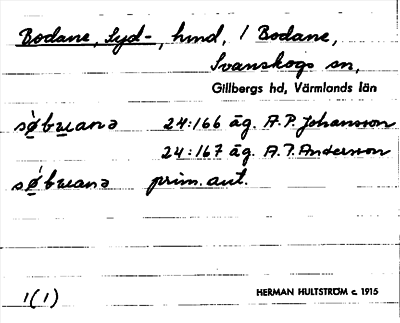 Bodane, Syd-, hmd, i Bodane,
Svanskogs sn,
Gillbergs hd, Värmlands län
sø̀bɯanə 24:166 äg. A.P. Johansson
24:167 äg. A.J. Andersson
sø̀bɯanə prim. aut.
1(1) HERMAN HULTSTRÖM c. 1915